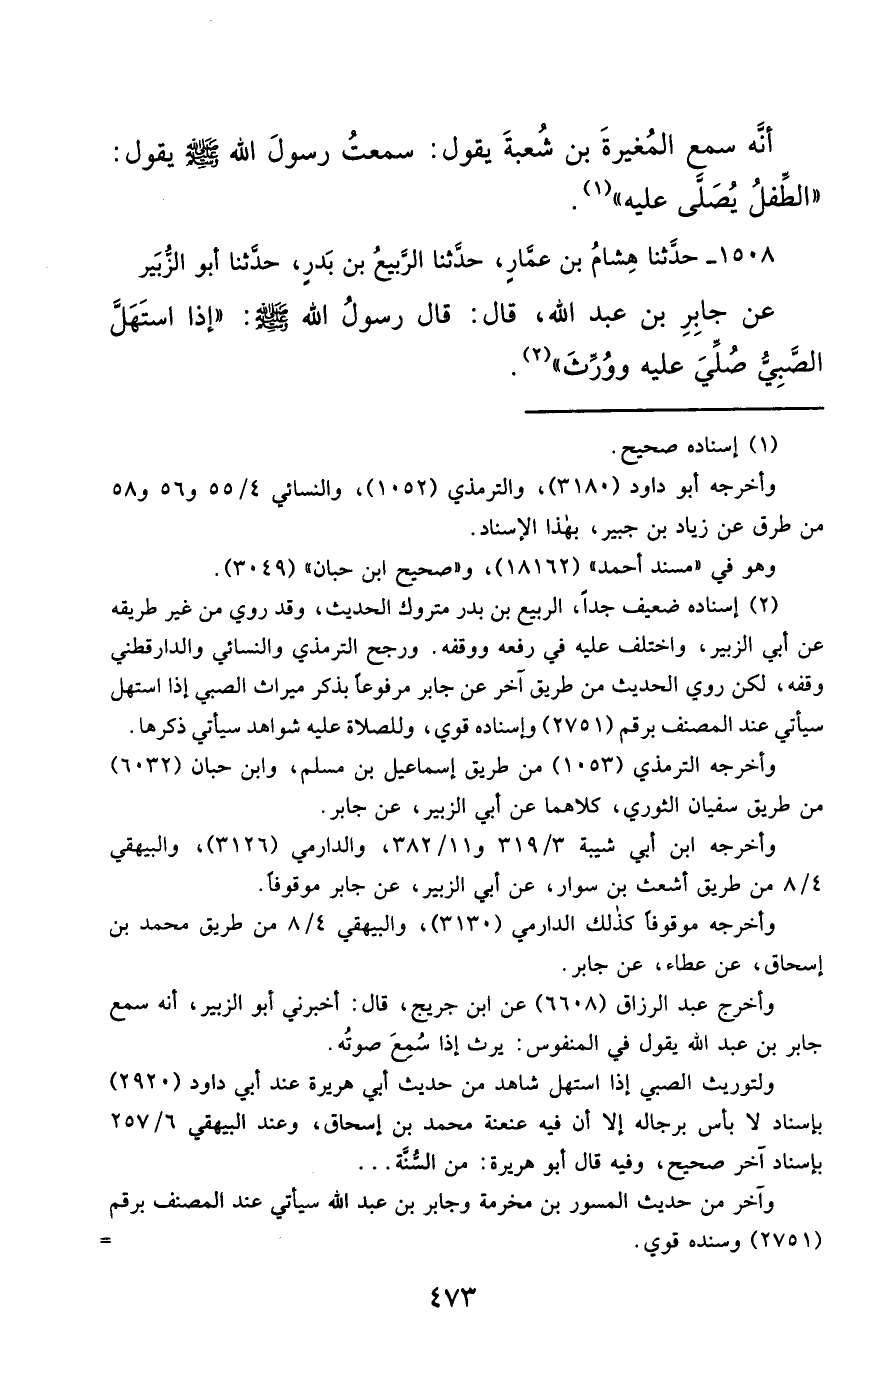 أنَّه سمع المُغيرةَ بن شُعبةَ يقول: سمعتُ رسولَ الله ﷺ يقول:
«الطِّفلُ يُصَلَّى عليه»(١).
١٥٠٨ـ حدَّثنا هِشامُ بن عمَّارٍ، حدَّثنا الرَّبيعُ بن بَدرٍ، حدَّثنا أبو الزُّبَير
عن جابِرِ بن عبد الله، قال: قال رسولُ الله ﷺ: «إذا استَهَلَّ
الصَّبِيُّ صُلِّيَ عليه ووُرِّثَ»(٢).
(١) إسناده صحيح.
وأخرجه أبو داود (٣١٨٠)، والترمذي (١٠٥٢)، والنسائي ٥٥/٤ و٥٦ و٥٨
من طرق عن زياد بن جبير، بهٰذا الإسناد.
وهو في «مسند أحمد» (١٨١٦٢)، و«صحيح ابن حبان» (٣٠٤٩).
(٢) إسناده ضعيف جداً، الربيع بن بدر متروك الحديث، وقد روي من غير طريقه
عن أبي الزبير، واختلف عليه في رفعه ووقفه. ورجح الترمذي والنسائي والدارقطني
وقفه، لكن روي الحديث من طريق آخر عن جابر مرفوعاً بذكر ميراث الصبي إذا استهل
سيأتي عند المصنف برقم (٢٧٥١) وإسناده قوي، وللصلاة عليه شواهد سيأتي ذكرها.
وأخرجه الترمذي (١٠٥٣) من طريق إسماعيل بن مسلم، وابن حبان (٦٠٣٢)
من طريق سفيان الثوري، كلاهما عن أبي الزبير، عن جابر.
وأخرجه ابن أبي شيبة ٣١٩/٣ و٣٨٢/١١، والدارمي (٣١٢٦)، والبيهقي
٨/٤ من طريق أشعث بن سوار، عن أبي الزبير، عن جابر موقوفاً.
وأخرجه موقوفاً كذٰلك الدارمي (٣١٣٠)، والبيهقي ٨/٤ من طريق محمد بن
إسحاق، عن عطاء، عن جابر.
وأخرج عبد الرزاق (٦٦٠٨) عن ابن جريج، قال: أخبرني أبو الزبير، أنه سمع
جابر بن عبد الله يقول في المنفوس: يرث إذا سُمِعَ صوتُه.
ولتوريث الصبي إذا استهل شاهد من حديث أبي هريرة عند أبي داود (٢٩٢٠)
بإسناد لا بأس برجاله إلا أن فيه عنعنة محمد بن إسحاق، وعند البيهقي ٢٥٧/٦
بإسناد آخر صحيح، وفيه قال أبو هريرة: من السُّنَّة...
وآخر من حديث المسور بن مخرمة وجابر بن عبد الله سيأتي عند المصنف برقم
(٢٧٥١) وسنده قوي. =
٤٧٣